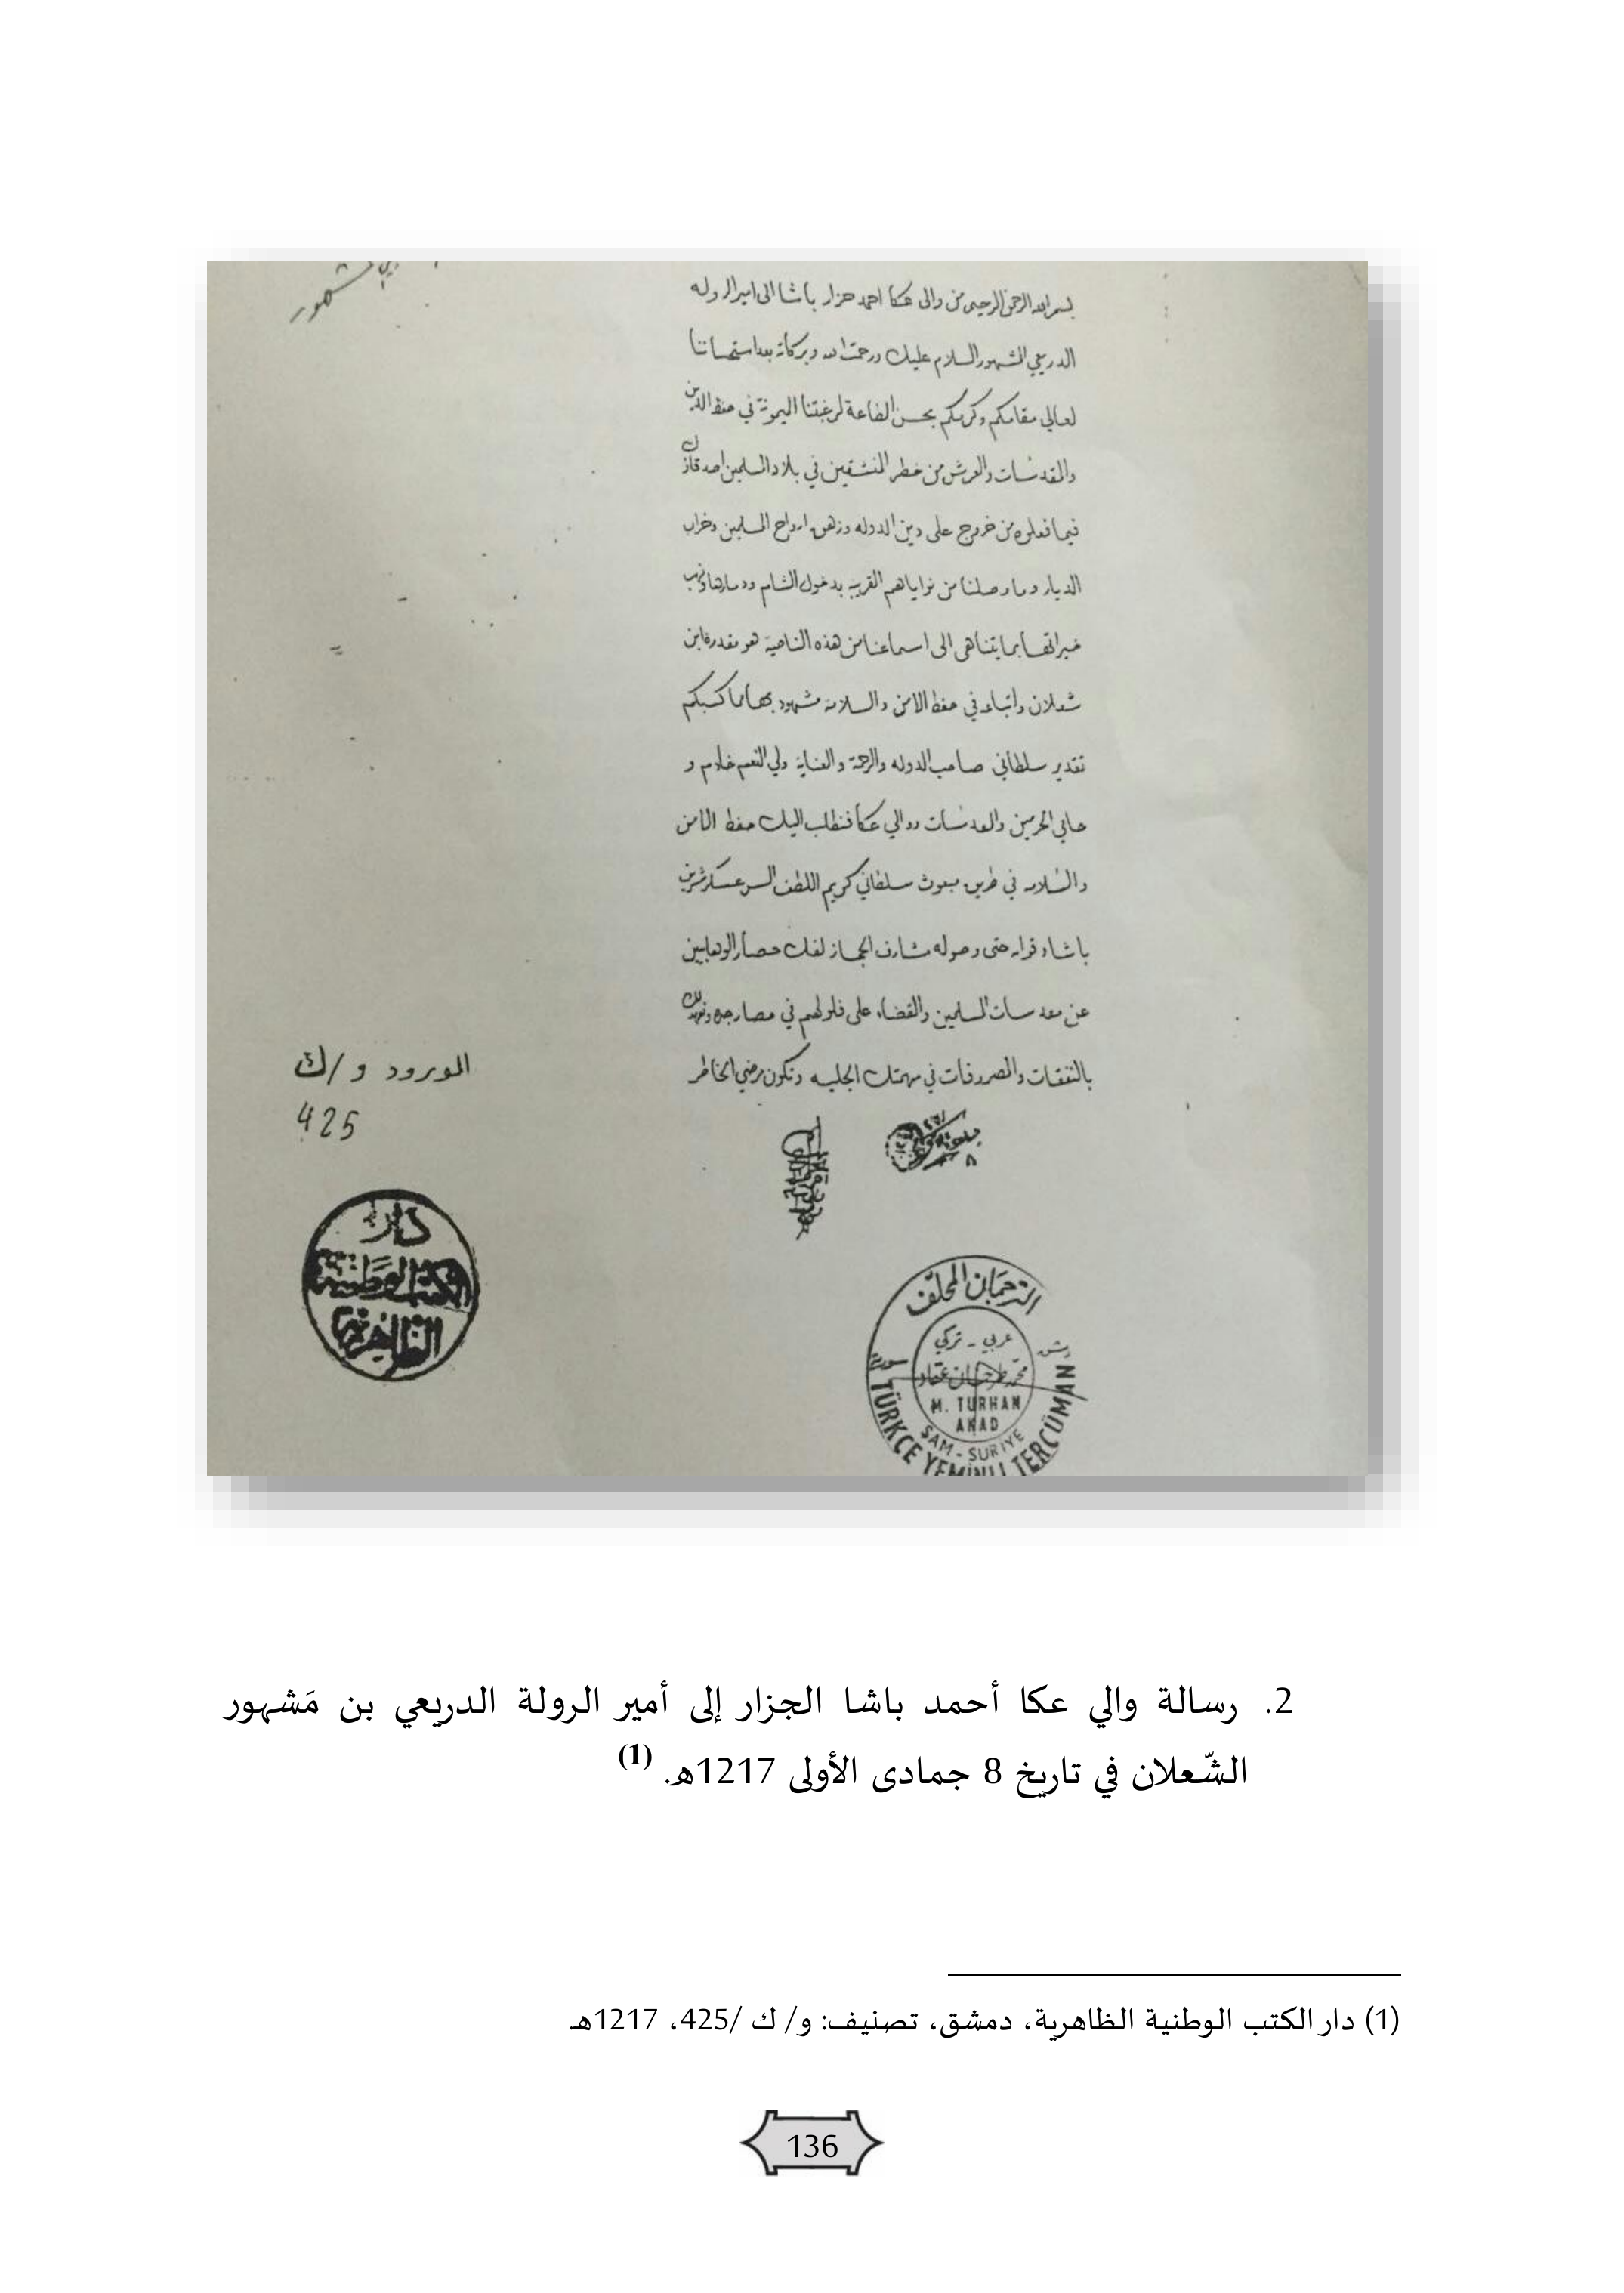 مشهور
بسم الله الرحمن الرحيم من والى عكا احمد جزار باشا الى امير الروله
الدريعي المشهور السلام عليك ورحمت الله وبركاته بعد استحساننا
لعالي مقامكم وكرمكم بحسن الطاعة لرغبتنا الميمونة في حفظ الدين
والمقدسات والعرش من خطر المنشقين في بلاد المسلمين
فيما فعلوه من خروج على دين الدوله وزهق ارواح المسلمين وخراب
الديار وما وصلنا من نواياهم القريبه بدخول الشام ودمارها ونهب
خيراتها بما يتناهى الى اسماعنا من هذه الناحية هو مقدرة ابن
شعلان واتباعه في حفظ الامن والسلامه مشهود بها مما كسبكم
تقدير سلطاني صاحب الدوله والرحمة والعناية ولي النعم خادم و
حامي الحرمين والمقدسات ووالي عكا فنطلب اليك حفظ الامن
والسلامه في طريق مبعوث سلطاني كريم اللطف السر عسكر شريف
باشا وقواته حتى وصوله مشارف الحجاز لفك حصار الوهابيين
عن مقدسات المسلمين والقضاء على فلولهم في
بالنفقات والمصروفات في مهمتك الجليه وتكون مرضي الخاطر
المورود و /ك
425
دار
الكتب الوطنية
الظاهرية
الترجمان المحلف
عربي - تركي
محمد طرخان عقاد
M. TURHAN
AKAD
ŞAM - SURİYE
TÜRKÇE YEMİNLİ TERCÜMAN
2. رسالة والي عكا أحمد باشا الجزار إلى أمير الرولة الدريعي بن مَشهور
الشّعلان في تاريخ 8 جمادى الأولى 1217هـ. (1)
(1) دار الكتب الوطنية الظاهرية، دمشق، تصنيف: و/ ك /425، 1217هـ
136